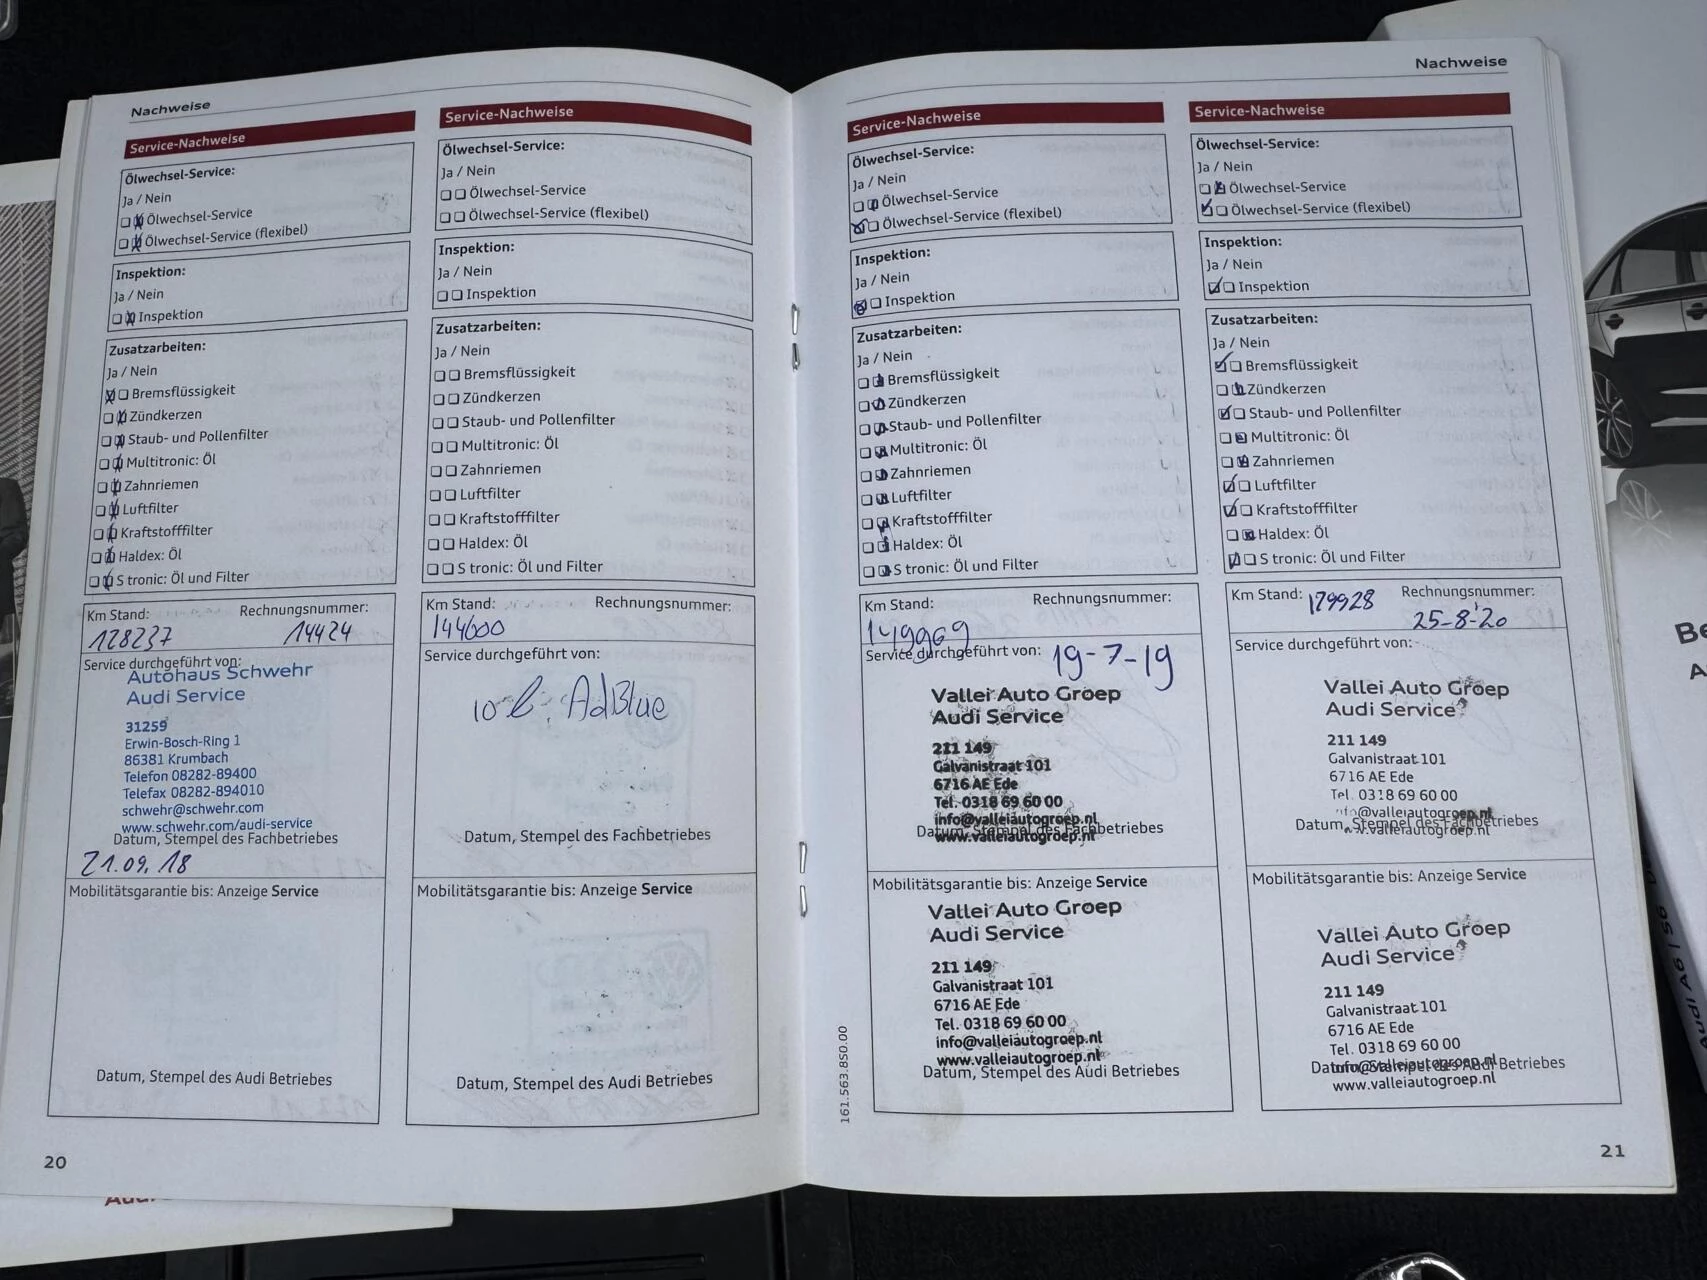 Nachweise
Service-Nachweise
Ölwechsel-Service:
Ja / Nein
Ölwechsel-Service
Ölwechsel-Service (flexibel)
Inspektion:
Ja / Nein
Inspektion
Zusatzarbeiten:
Ja / Nein
Bremsflüssigkeit
Zündkerzen
Staub- und Pollenfilter
Multitronic: Öl
Zahnriemen
Luftfilter
Kraftstofffilter
Haldex: Öl
S tronic: Öl und Filter
Km Stand: Rechnungsnummer:
128237 14424
Service durchgeführt von:
Autohaus Schwehr
Audi Service
31259
Erwin-Bosch-Ring 1
86381 Krumbach
Telefon 08282-89400
Telefax 08282-894010
schwehr@schwehr.com
www.schwehr.com/audi-service
Datum, Stempel des Fachbetriebes
21.09.18
Mobilitätsgarantie bis: Anzeige Service
Datum, Stempel des Audi Betriebes
20
Service-Nachweise
Ölwechsel-Service:
Ja / Nein
Ölwechsel-Service
Ölwechsel-Service (flexibel)
Inspektion:
Ja / Nein
Inspektion
Zusatzarbeiten:
Ja / Nein
Bremsflüssigkeit
Zündkerzen
Staub- und Pollenfilter
Multitronic: Öl
Zahnriemen
Luftfilter
Kraftstofffilter
Haldex: Öl
S tronic: Öl und Filter
Km Stand: Rechnungsnummer:
144000
Service durchgeführt von:
10 l. AdBlue
Datum, Stempel des Fachbetriebes
Mobilitätsgarantie bis: Anzeige Service
Datum, Stempel des Audi Betriebes
Nachweise
Service-Nachweise
Ölwechsel-Service:
Ja / Nein
Ölwechsel-Service
Ölwechsel-Service (flexibel)
Inspektion:
Ja / Nein
Inspektion
Zusatzarbeiten:
Ja / Nein
Bremsflüssigkeit
Zündkerzen
Staub- und Pollenfilter
Multitronic: Öl
Zahnriemen
Luftfilter
Kraftstofffilter
Haldex: Öl
S tronic: Öl und Filter
Km Stand: Rechnungsnummer:
149969
Service durchgeführt von: 19-7-19
Vallei Auto Groep
Audi Service
211 149
Galvanistraat 101
6716 AE Ede
Tel. 0318 69 60 00
info@valleiautogroep.nl
www.valleiautogroep.nl
Datum, Stempel des Fachbetriebes
Mobilitätsgarantie bis: Anzeige Service
Vallei Auto Groep
Audi Service
211 149
Galvanistraat 101
6716 AE Ede
Tel. 0318 69 60 00
info@valleiautogroep.nl
www.valleiautogroep.nl
Datum, Stempel des Audi Betriebes
161.563.850.00
Service-Nachweise
Ölwechsel-Service:
Ja / Nein
Ölwechsel-Service
Ölwechsel-Service (flexibel)
Inspektion:
Ja / Nein
Inspektion
Zusatzarbeiten:
Ja / Nein
Bremsflüssigkeit
Zündkerzen
Staub- und Pollenfilter
Multitronic: Öl
Zahnriemen
Luftfilter
Kraftstofffilter
Haldex: Öl
S tronic: Öl und Filter
Km Stand: 179928 Rechnungsnummer:
25-8-'20
Service durchgeführt von:
Vallei Auto Groep
Audi Service
211 149
Galvanistraat 101
6716 AE Ede
Tel. 0318 69 60 00
info@valleiautogroep.nl
www.valleiautogroep.nl
Datum, Stempel des Fachbetriebes
Mobilitätsgarantie bis: Anzeige Service
Vallei Auto Groep
Audi Service
211 149
Galvanistraat 101
6716 AE Ede
Tel. 0318 69 60 00
info@valleiautogroep.nl
www.valleiautogroep.nl
Datum, Stempel des Audi Betriebes
21